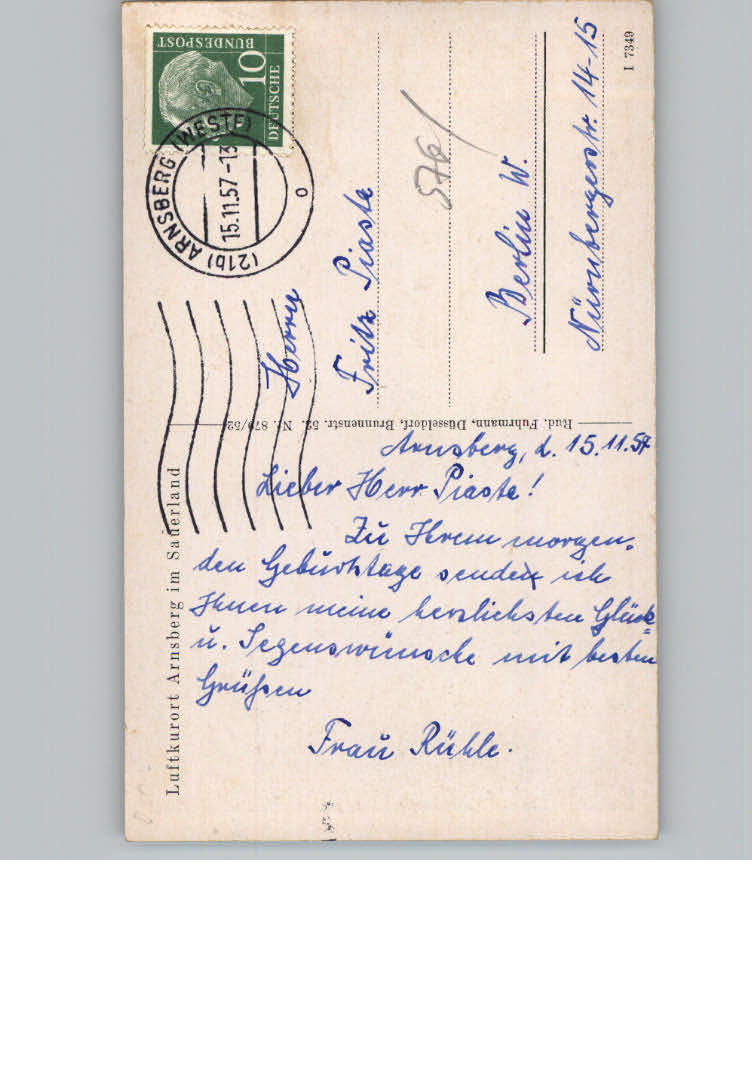 BUNDESPOST
10
DEUTSCHE
(21b) ARNSBERG (WESTF)
15.11.57-13
o
I 7349
576/
Herrn
Fritz Piaste
Berlin W.
Nürnbergerstr. 14-15
Rud. Fuhrmann, Düsseldorf, Brunnenstr. 52. Nr. 879/52
Luftkurort Arnsberg im Sauerland
Arnsberg, d. 15.11.57
Lieber Herr Piaste!
Zu Ihrem morgen-
den Geburtstage senden ich
Ihnen meine herzlichsten Glück-
u. Segenswünsche mit besten
Grüßen
Frau Rühle.